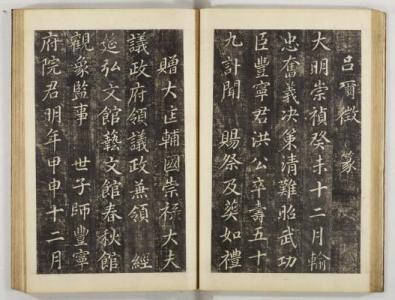 呂爾徵 篆
大明崇禎癸未十二月輸
忠奮義决策清難昭武功
臣豐寧君洪公卒壽五十
九訃聞 賜祭及葬如禮
贈大匡輔國崇祿大夫
議政府領議政兼領 經
筵弘文館藝文館春秋館
觀象監事 世子師豐寧
府院君明年甲申十二月